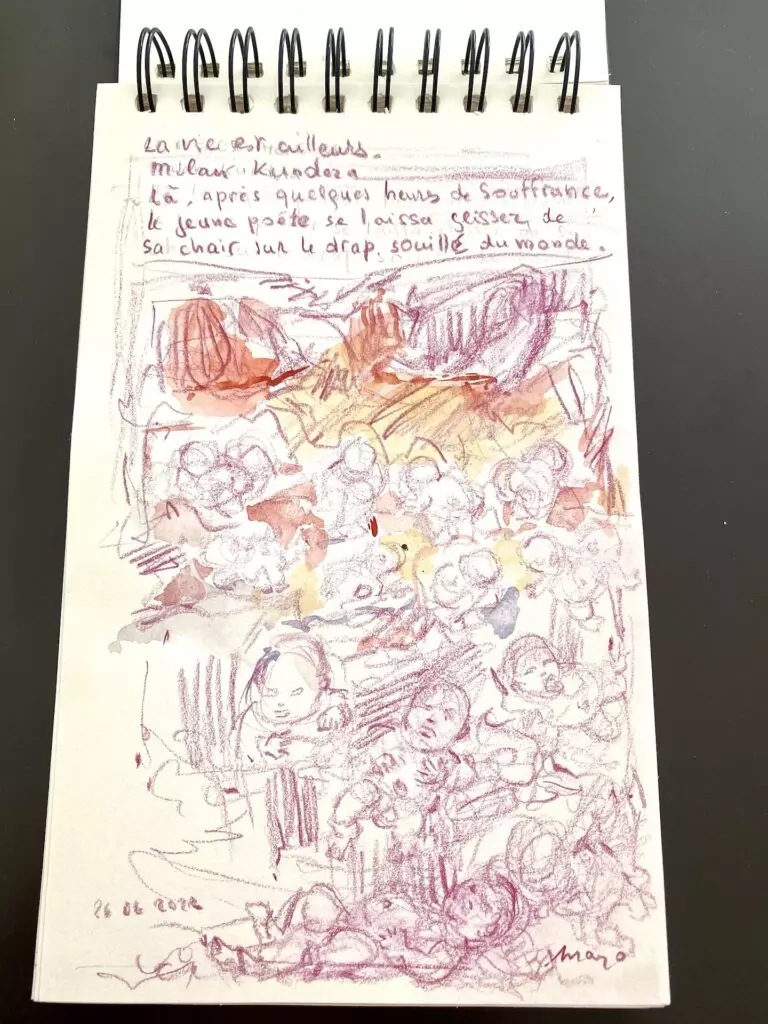 La vie est ailleurs.
Milan Kundera
là, après quelques heures de souffrance,
le jeune poète se laissa glisser de
sa chair sur le drap souillé du monde.
26 06 2022